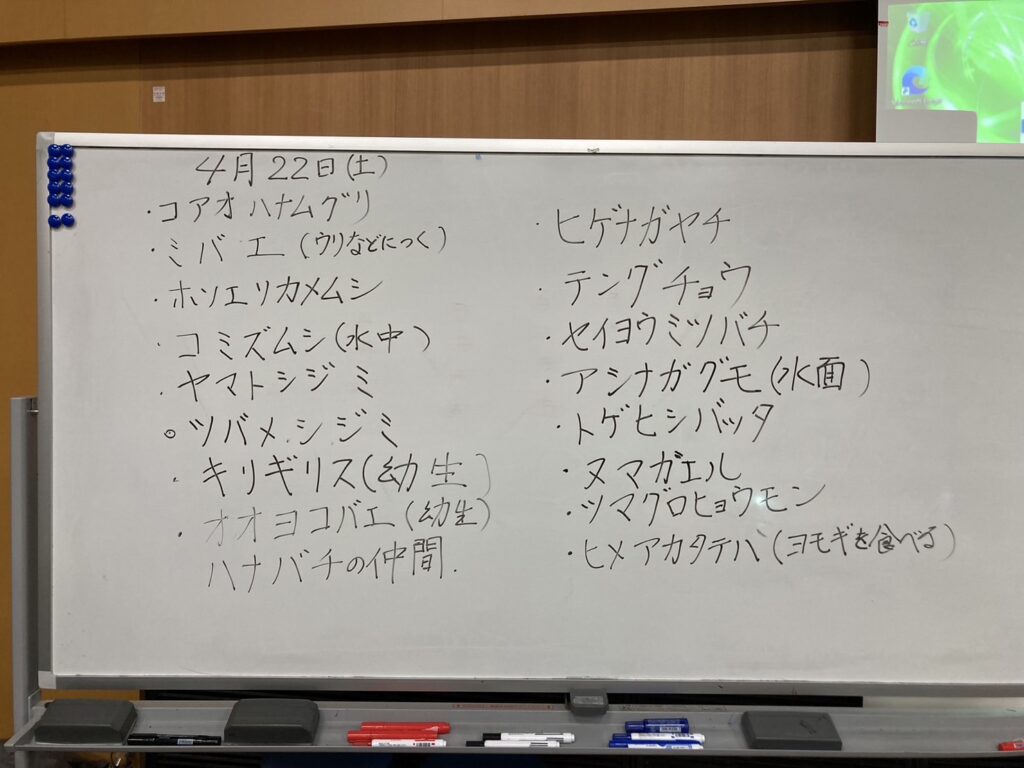 4月22日(土)
・コアオハナムグリ
・ミバエ(ウリなどにつく)
・ホソエリカメムシ
・コミズムシ(水中)
・ヤマトシジミ
○ツバメシジミ
・キリギリス(幼生)
・オオヨコバエ(幼生)
ハナバチの仲間.
・ヒゲナガヤチ
・テングチョウ
・セイヨウミツバチ
・アシナガグモ(水面)
・トゲヒシバッタ
・ヌマガエル
・ツマグロヒョウモン
・ヒメアカタテハ(ヨモギを食べる)